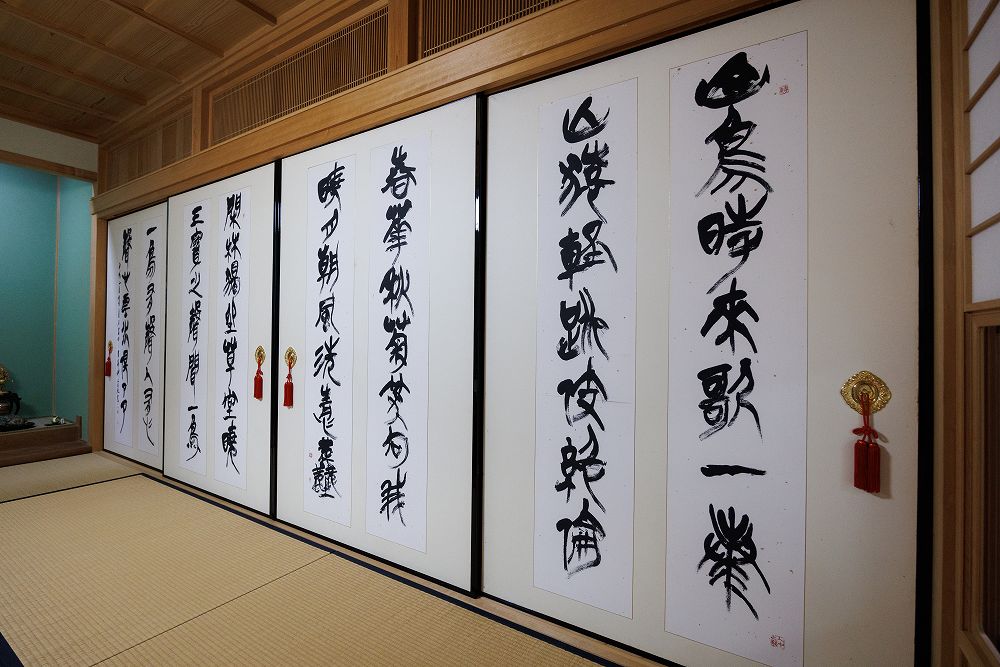 山鳥時来歌一奏
山猿軽跳伎絶倫
春華秋菊笑向我
暁月朝風洗情塵
閑林獨坐草堂暁
三寶之聲聞一鳥
一鳥有聲人有心
聲心雲水倶了了